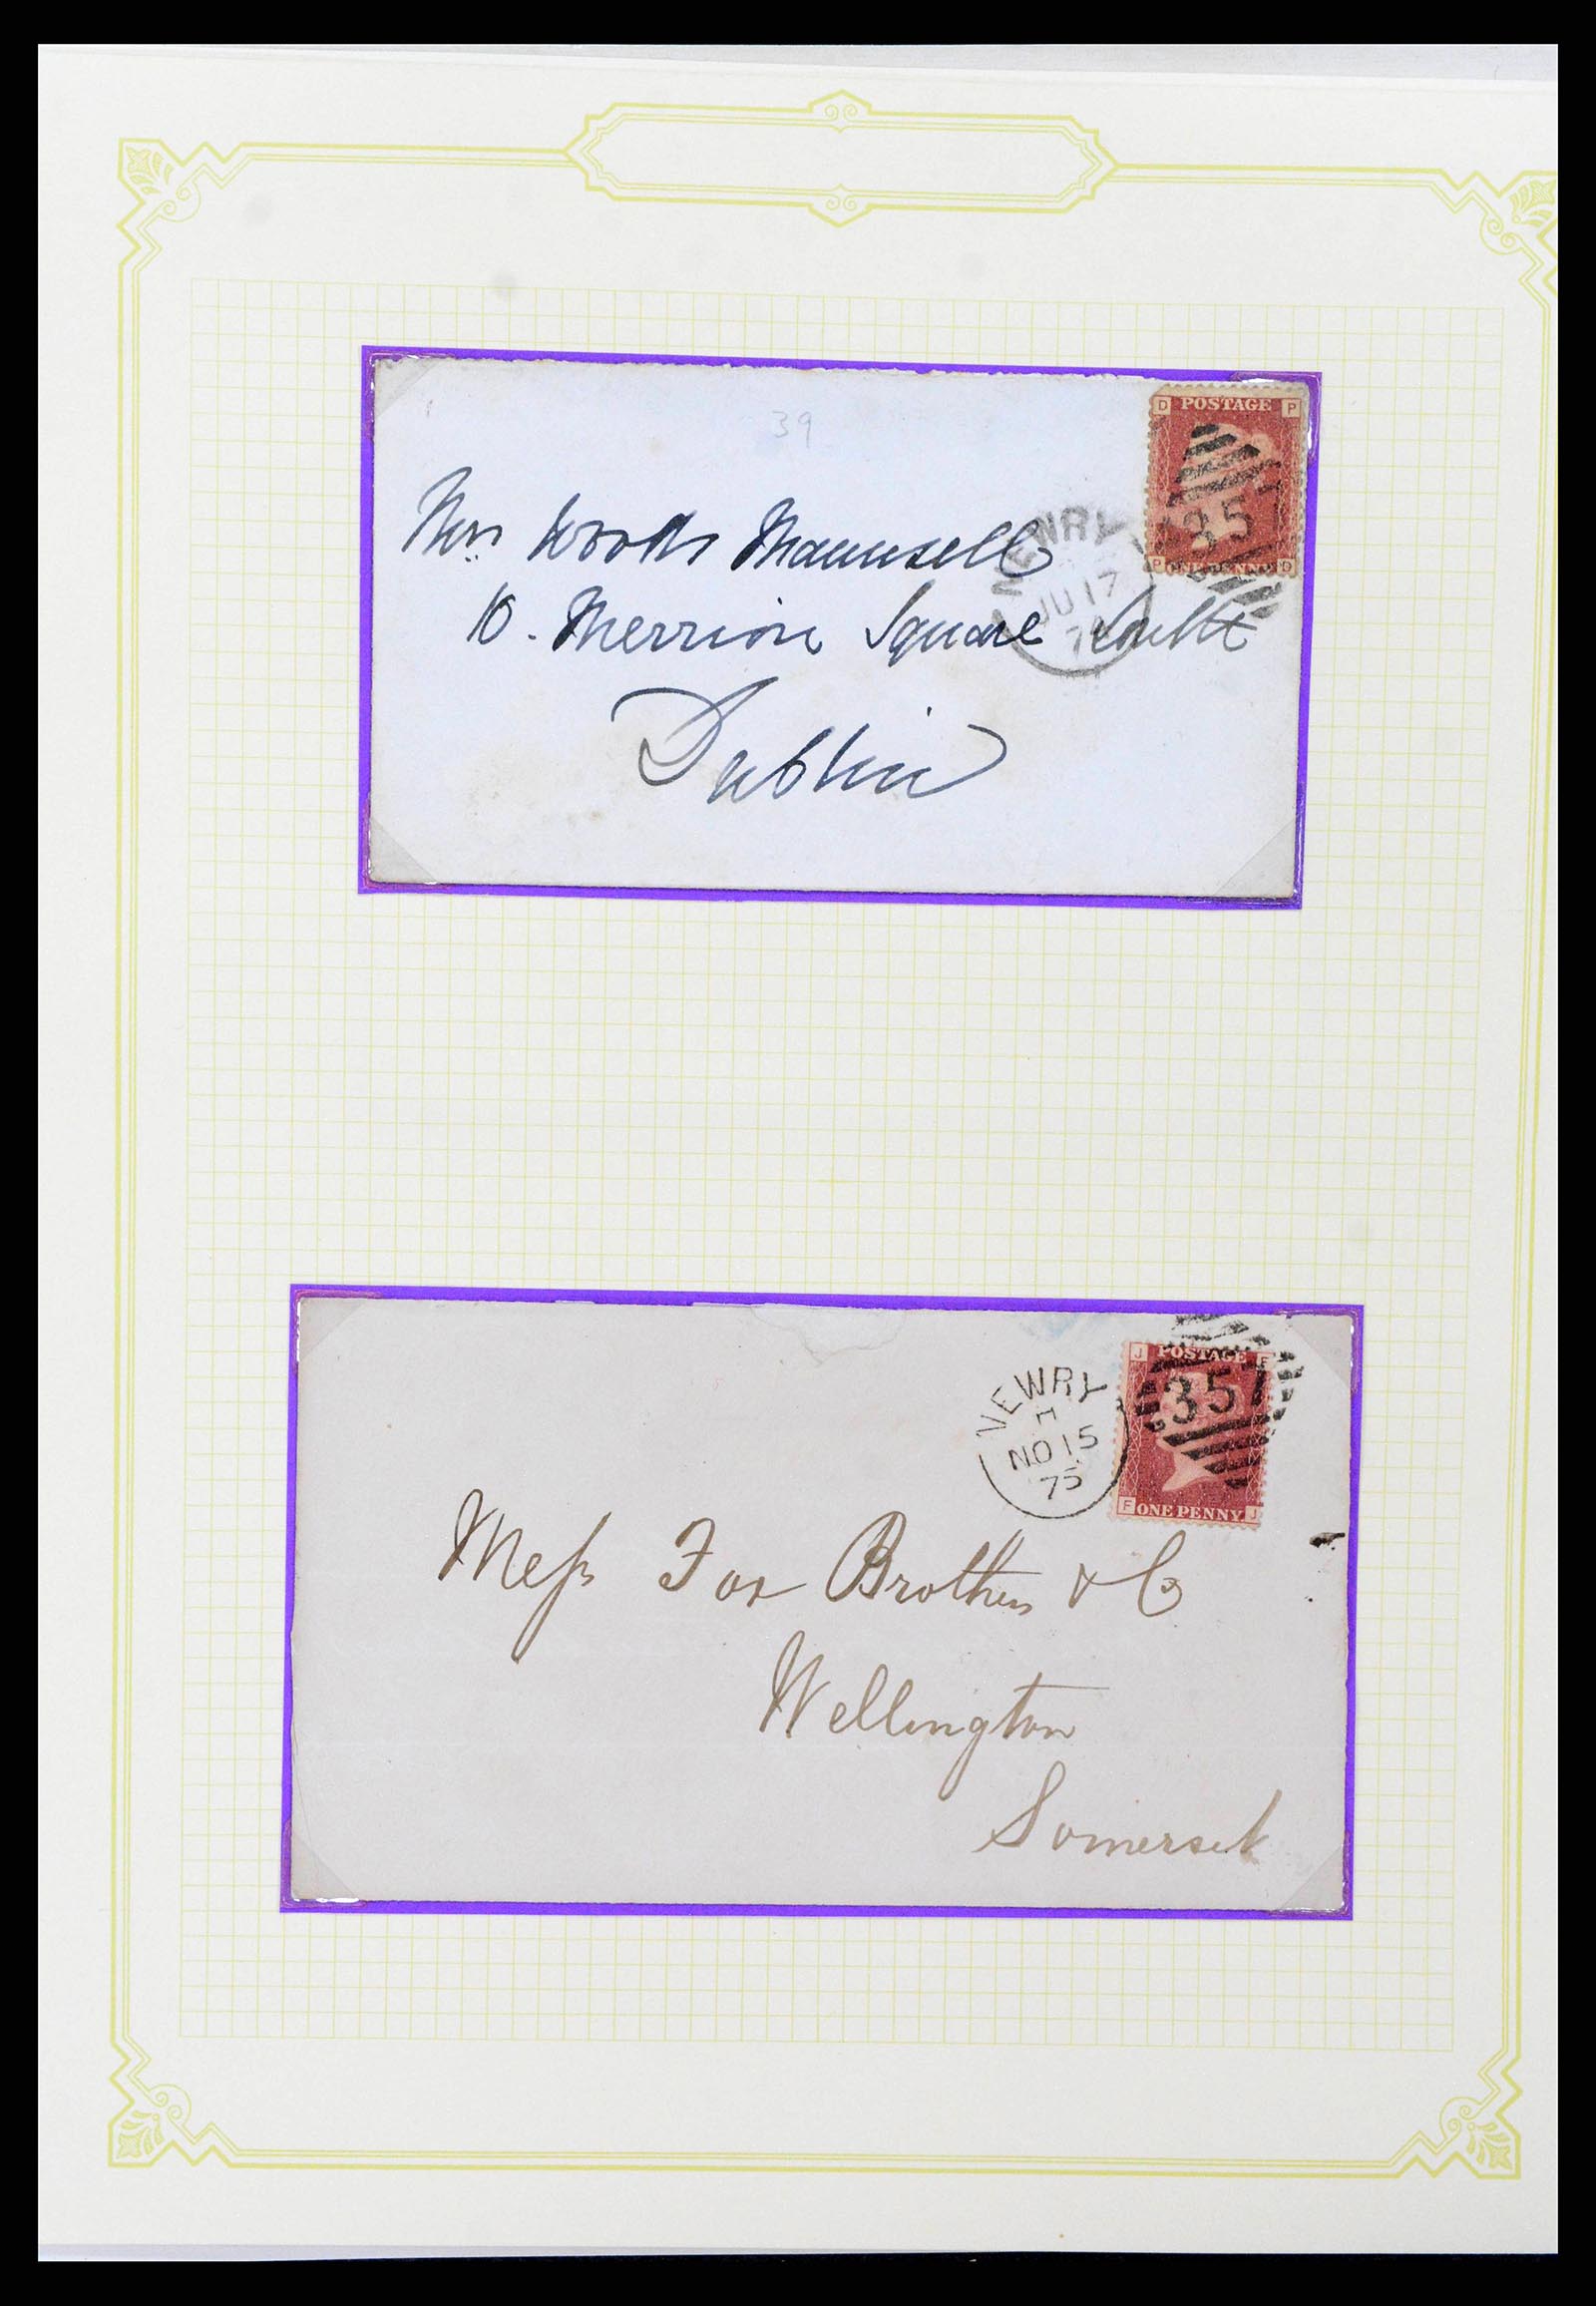 39
D POSTAGE P
Mrs. Woods Maunsell
10. Merrion Square South
Dublin
NEWRY
JU 17
357
P ONE PENNY D
J POSTAGE F
357
F ONE PENNY J
NEWRY
NO 15
75
Mess Fox Brothers & Co
Wellington
Somerset